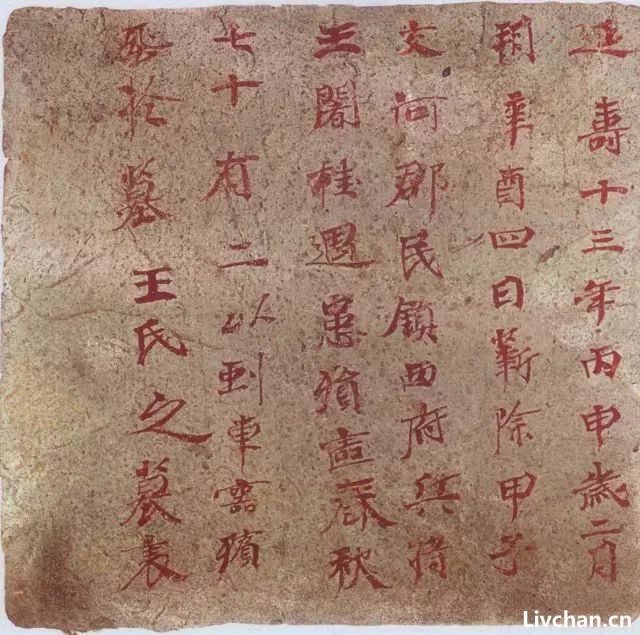 延壽十三年丙申歲二月
朔辛酉四日除甲子
交河郡民鎮西府兵將
王闍桂遇患殞喪春秋
七十有二以到車靈殯
葬於墓王氏之墓表
Livchan.cn